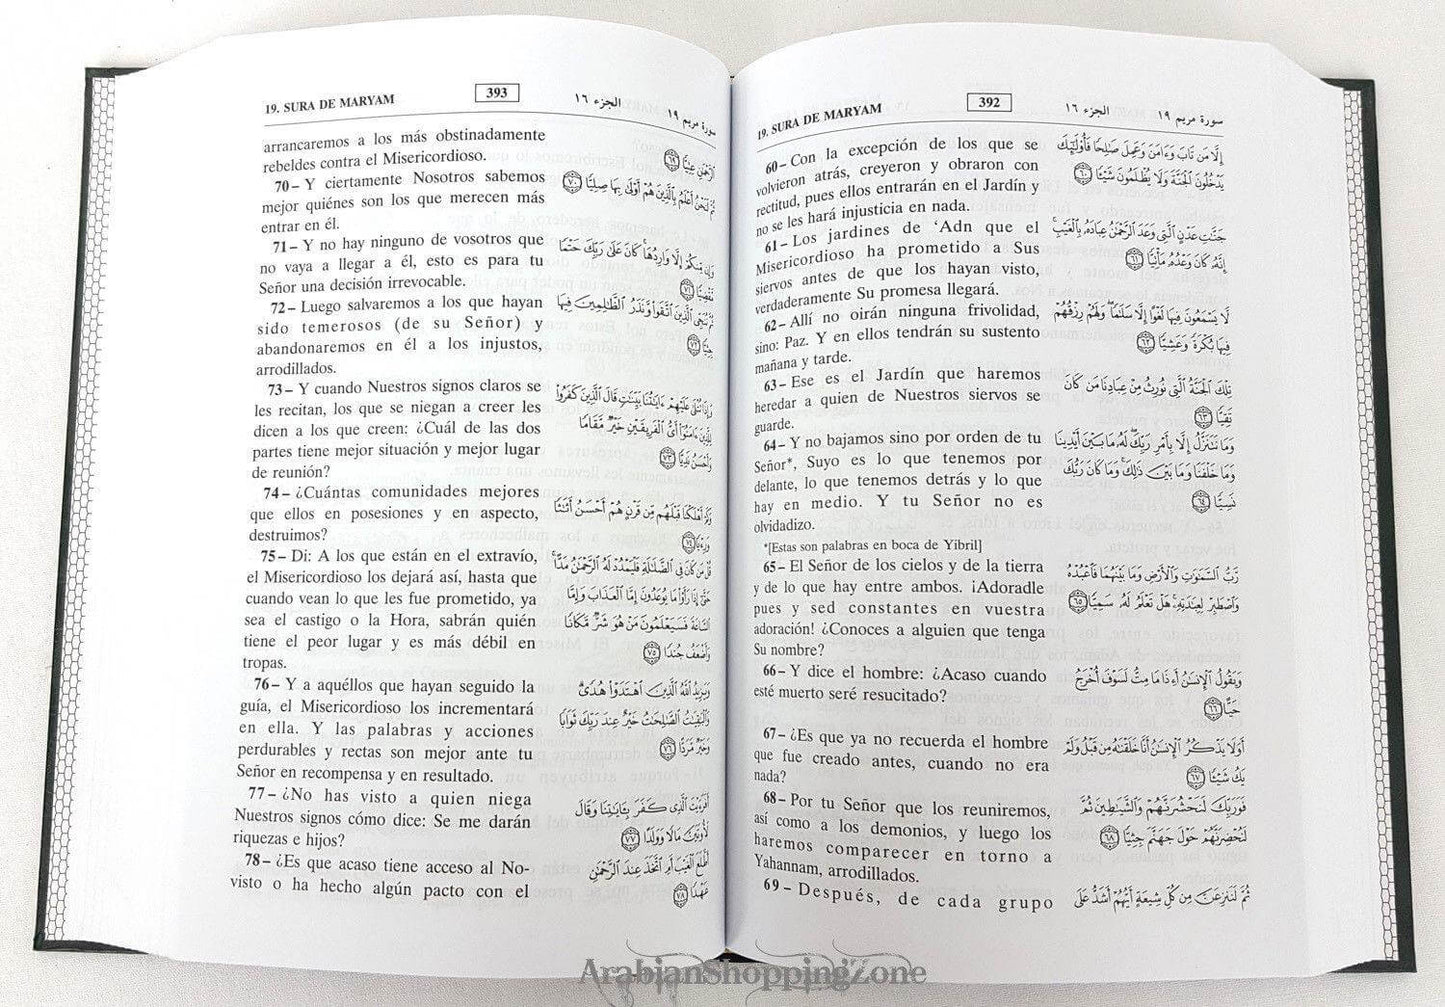 19. SURA DE MARYAM
392
الجزء ١٦
سورة مريم ١٩
60 – Con la excepción de los que se
volvieron atrás, creyeron y obraron con
rectitud, pues ellos entrarán en el Jardín y
no se les hará injusticia en nada.
61 – Los jardines de ‘Adn que el
Misericordioso ha prometido a Sus
siervos antes de que los hayan visto,
verdaderamente Su promesa llegará.
62 – Allí no oirán ninguna frivolidad,
sino: Paz. Y en ellos tendrán su sustento
mañana y tarde.
63 – Ese es el Jardín que haremos
heredar a quien de Nuestros siervos se
guarde.
64 – Y no bajamos sino por orden de tu
Señor*, Suyo es lo que tenemos por
delante, lo que tenemos detrás y lo que
hay en medio. Y tu Señor no es
olvidadizo.
*[Estas son palabras en boca de Yibril]
65 – El Señor de los cielos y de la tierra
y de lo que hay entre ambos. ¡Adoradle
pues y sed constantes en vuestra
adoración! ¿Conoces a alguien que tenga
Su nombre?
66 – Y dice el hombre: ¿Acaso cuando
esté muerto seré resucitado?
67 – ¿Es que ya no recuerda el hombre
que fue creado antes, cuando no era
nada?
68 – Por tu Señor que los reuniremos,
así como a los demonios, y luego los
haremos comparecer en torno a
Yahannam, arrodillados.
69 – Después, de cada grupo
إِلَّا مَن تَابَ وَءَامَنَ وَعَمِلَ صَٰلِحًا فَأُوْلَٰٓئِكَ
يَدْخُلُونَ ٱلْجَنَّةَ وَلَا يُظْلَمُونَ شَيْـًٔا ٦٠
جَنَّٰتِ عَدْنٍ ٱلَّتِى وَعَدَ ٱلرَّحْمَٰنُ عِبَادَهُۥ بِٱلْغَيْبِ ۚ
إِنَّهُۥ كَانَ وَعْدُهُۥ مَأْتِيًّا ٦١
لَا يَسْمَعُونَ فِيهَا لَغْوًا إِلَّا سَلَٰمًا ۖ وَلَهُمْ رِزْقُهُمْ
فِيهَا بُكْرَةً وَعَشِيًّا ٦٢
تِلْكَ ٱلْجَنَّةُ ٱلَّتِى نُورِثُ مِنْ عِبَادِنَا مَن كَانَ
تَقِيًّا ٦٣
وَمَا نَتَنَزَّلُ إِلَّا بِأَمْرِ رَبِّكَ ۖ لَهُۥ مَا بَيْنَ أَيْدِينَا
وَمَا خَلْفَنَا وَمَا بَيْنَ ذَٰلِكَ ۚ وَمَا كَانَ رَبُّكَ
نَسِيًّا ٦٤
رَّبُّ ٱلسَّمَٰوَٰتِ وَٱلْأَرْضِ وَمَا بَيْنَهُمَا فَٱعْبُدْهُ
وَٱصْطَبِرْ لِعِبَٰدَتِهِۦ ۚ هَلْ تَعْلَمُ لَهُۥ سَمِيًّا ٦٥
وَيَقُولُ ٱلْإِنسَٰنُ أَءِذَا مَا مِتُّ لَسَوْفَ أُخْرَجُ
حَيًّا ٦٦
أَوَلَا يَذْكُرُ ٱلْإِنسَٰنُ أَنَّا خَلَقْنَٰهُ مِن قَبْلُ وَلَمْ
يَكُ شَيْـًٔا ٦٧
فَوَرَبِّكَ لَنَحْشُرَنَّهُمْ وَٱلشَّيَٰطِينَ ثُمَّ
لَنُحْضِرَنَّهُمْ حَوْلَ جَهَنَّمَ جِثِيًّا ٦٨
ثُمَّ لَنَنزِعَنَّ مِن كُلِّ شِيعَةٍ أَيُّهُمْ أَشَدُّ عَلَى
19. SURA DE MARYAM
393
الجزء ١٦
سورة مريم ١٩
arrancaremos a los más obstinadamente
rebeldes contra el Misericordioso.
70 – Y ciertamente Nosotros sabemos
mejor quiénes son los que merecen más
entrar en él.
71 – Y no hay ninguno de vosotros que
no vaya a llegar a él, esto es para tu
Señor una decisión irrevocable.
72 – Luego salvaremos a los que hayan
sido temerosos (de su Señor) y
abandonaremos en él a los injustos,
arrodillados.
73 – Y cuando Nuestros signos claros se
les recitan, los que se niegan a creer les
dicen a los que creen: ¿Cuál de las dos
partes tiene mejor situación y mejor lugar
de reunión?
74 – ¿Cuántas comunidades mejores
que ellos en posesiones y en aspecto,
destruimos?
75 – Di: A los que están en el extravío,
el Misericordioso los dejará así, hasta que
cuando vean lo que les fue prometido, ya
sea el castigo o la Hora, sabrán quién
tiene el peor lugar y es más débil en
tropas.
76 – Y a aquéllos que hayan seguido la
guía, el Misericordioso los incrementará
en ella. Y las palabras y acciones
perdurables y rectas son mejor ante tu
Señor en recompensa y en resultado.
77 – ¿No has visto a quien niega
Nuestros signos cómo dice: Se me darán
riquezas e hijos?
78 – ¿Es que acaso tiene acceso al No-
visto o ha hecho algún pacto con el
ٱلرَّحْمَٰنِ عِتِيًّا ٦٩
ثُمَّ لَنَحْنُ أَعْلَمُ بِٱلَّذِينَ هُمْ أَوْلَىٰ بِهَا صِلِيًّا ٧٠
وَإِن مِّنكُمْ إِلَّا وَارِدُهَا ۚ كَانَ عَلَىٰ رَبِّكَ حَتْمًا
مَّقْضِيًّا ٧١
ثُمَّ نُنَجِّى ٱلَّذِينَ ٱتَّقَوا۟ وَّنَذَرُ ٱلظَّٰلِمِينَ فِيهَا
جِثِيًّا ٧٢
وَإِذَا تُتْلَىٰ عَلَيْهِمْ ءَايَٰتُنَا بَيِّنَٰتٍ قَالَ ٱلَّذِينَ كَفَرُوا۟
لِلَّذِينَ ءَامَنُوٓا۟ أَىُّ ٱلْفَرِيقَيْنِ خَيْرٌ مَّقَامًا
وَأَحْسَنُ نَدِيًّا ٧٣
وَكَمْ أَهْلَكْنَا قَبْلَهُم مِّن قَرْنٍ هُمْ أَحْسَنُ أَثَٰثًا
وَرِءْيًا ٧٤
قُلْ مَن كَانَ فِى ٱلضَّلَٰلَةِ فَلْيَمْدُدْ لَهُ ٱلرَّحْمَٰنُ مَدًّا ۚ
حَتَّىٰٓ إِذَا رَأَوْا۟ مَا يُوعَدُونَ إِمَّا ٱلْعَذَابَ وَإِمَّا
ٱلسَّاعَةَ فَسَيَعْلَمُونَ مَنْ هُوَ شَرٌّ مَّكَانًا
وَأَضْعَفُ جُندًا ٧٥
وَيَزِيدُ ٱللَّهُ ٱلَّذِينَ ٱهْتَدَوْا۟ هُدًى ۗ
وَٱلْبَٰقِيَٰتُ ٱلصَّٰلِحَٰتُ خَيْرٌ عِندَ رَبِّكَ ثَوَابًا
وَخَيْرٌ مَّرَدًّا ٧٦
أَفَرَءَيْتَ ٱلَّذِى كَفَرَ بِـَٔايَٰتِنَا وَقَالَ
لَأُوتَيَنَّ مَالًا وَوَلَدًا ٧٧
أَطَّلَعَ ٱلْغَيْبَ أَمِ ٱتَّخَذَ عِندَ ٱلرَّحْمَٰنِ
عَهْدًا ٧٨
ArabianShoppingZone